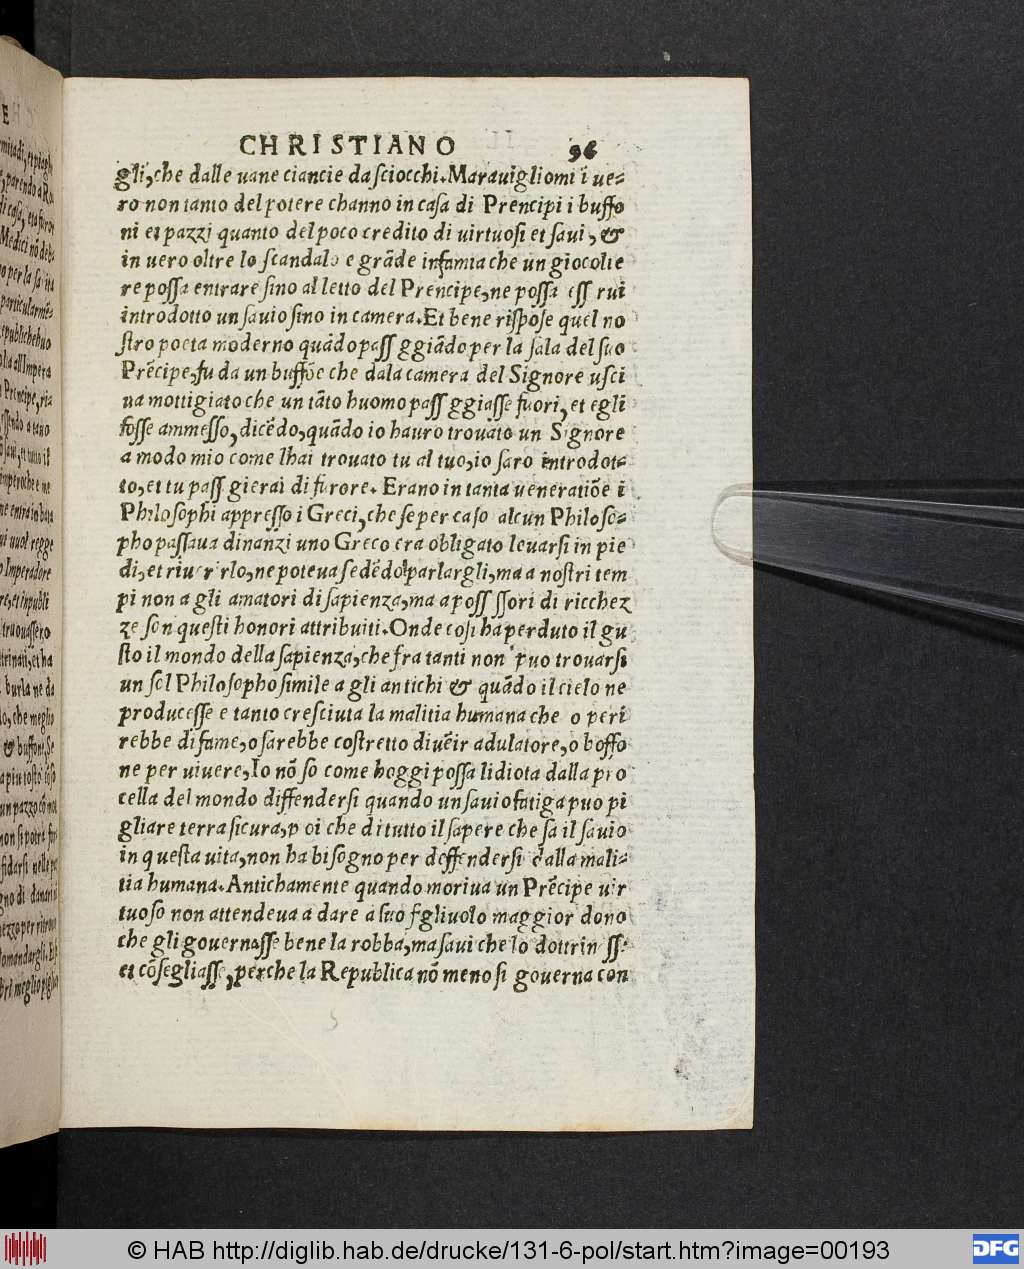 CHRISTIANO 96
gli, che dalle uane ciancie da sciocchi. Marauigliomi i ue-
ro non tanto del potere channo in casa di Prencipi i buffo
ni et pazzi quanto del poco credito di uirtuosi et saui, &
in uero oltre lo scandalo e grãde infamia che un giocolie
re possa entrare sino al letto del Prencipe, ne possa ess rui
introdotto un sauio sino in camera. Et bene rispose quel no
stro poeta moderno quãdo pass ggiãdo per la sala del suo
Prẽcipe, fu da un buffõe che dala camera del Signore usci
ua mottigiato che un tãto huomo pass ggiasse fuori, et egli
fosse ammesso, dicẽdo, quãdo io hauro trouato un Signore
a modo mio come lhai trouato tu al tuo, io saro introdot-
to, et tu pass gierai di furore. Erano in tanta ueneratiõe i
Philosophi appresso i Greci, che se per caso alcun Philoso-
pho passaua dinanzi uno Greco era obligato leuarsi in pie
di, et riuer rlo, ne poteua sedẽdo parlargli, ma a nostri tem
pi non a gli amatori di sapienza, ma a poss ssori di ricchez
ze son questi honori attribuiti. Onde cosi ha perduto il gu
sto il mondo della sapienza, che fra tanti non puo trouarsi
un sol Philosopho simile a gli antichi & quãdo il cielo ne
producesse e tanto cresciuta la malitia humana che o peri
rebbe di fame, o sarebbe costretto diuẽir adulatore, o boffo
ne per uiuere, Io nõ so come hoggi possa lidiota dalla pro
cella del mondo diffendersi quando un sauio fatiga puo pi
gliare terra sicura, p oi che di tutto il sapere che sa il sauio
in questa uita, non ha bisogno per deffendersi dalla mali-
tia humana. Antichamente quando moriua un Prẽcipe uir
tuoso non attendeua a dare a suo figliuolo maggior dono
che gli gouernasse bene la robba, ma saui che lo dottrin sse
et cõsegliasse, perche la Republica nõ meno si gouerna con
© HAB http://diglib.hab.de/drucke/131-6-pol/start.htm?image=00193
DFG